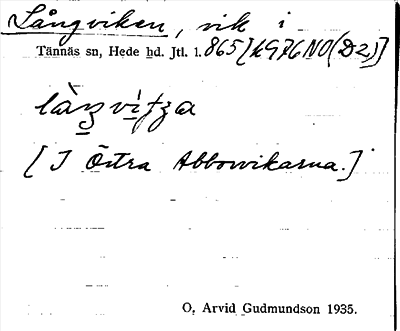 Långviken, vik i
Tännäs sn, Hede hd. Jtl. l. 865 [k976NO(D2)]
[I Östra Abborrvikarna.]
O. Arvid Gudmundson 1935.